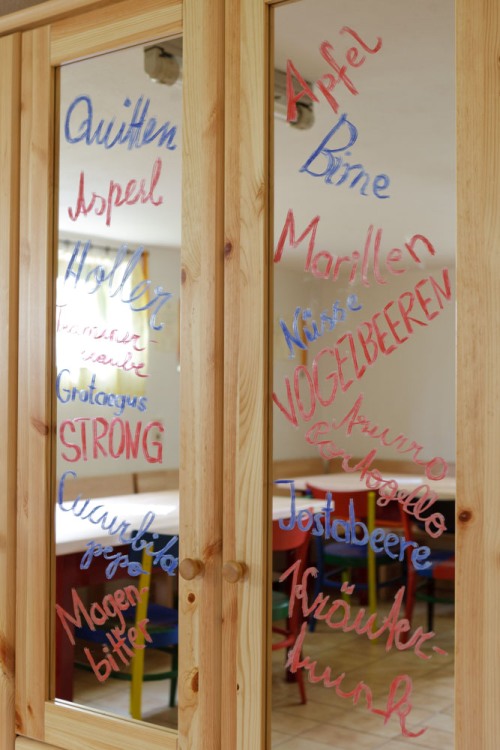 Quitten
Asperl
Holler
Traminer-
traube
Grataegus
STRONG
Cucurbita
pepo
Magen-
bitter
Apfel
Birne
Marillen
Nüsse
VOGELBEEREN
Kräuter-
trunk
Jostabeere